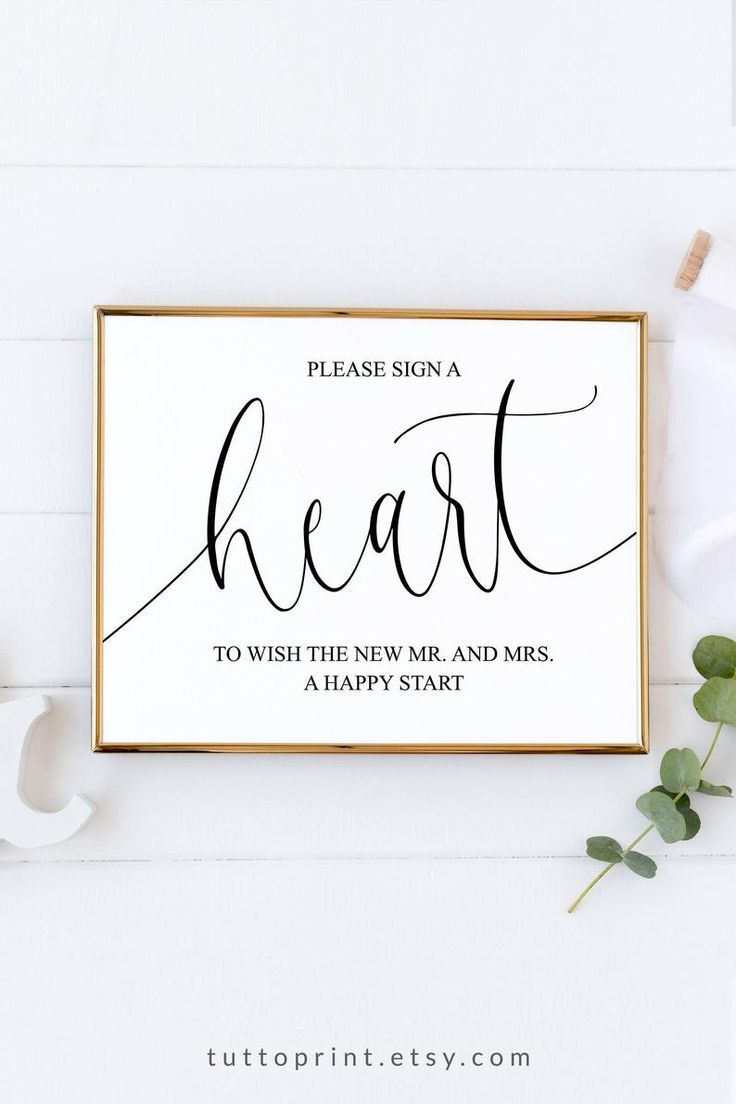 PLEASE SIGN A
heart
TO WISH THE NEW MR. AND MRS.
A HAPPY START
tuttoprint.etsy.com